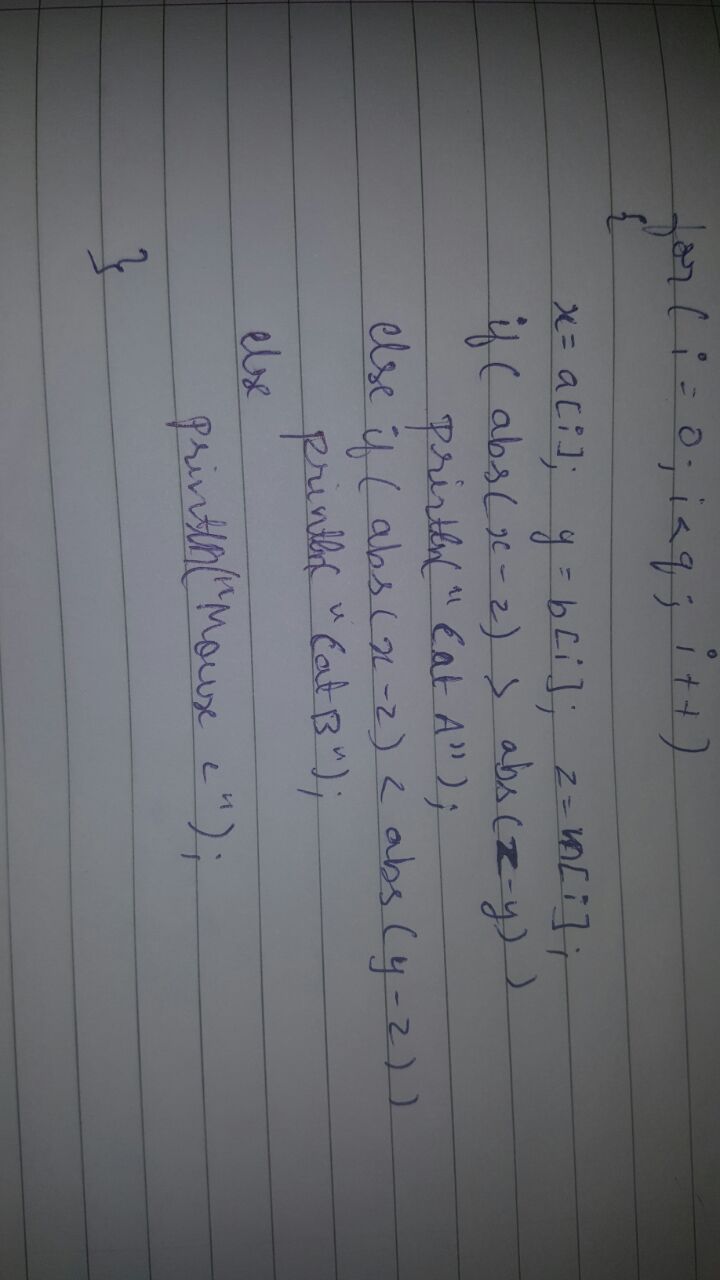 for ( i = 0; i<q; i++)
{
x = a[i]; y = b[i]; z = m[i];
if ( abs(x-z) > abs(z-y) )
println("Cat A");
else if ( abs(x-z) < abs(y-z) )
println("Cat B");
else
println("Mouse C");
}